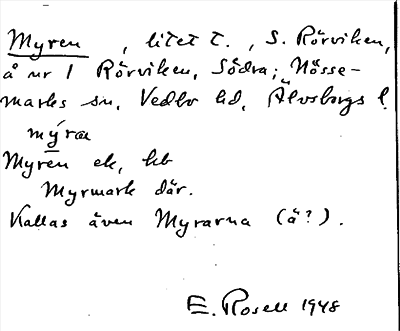 Myren, litet t., S. Rörviken,
å nr 1 Rörviken, Södra; Nösse-
marks sn, Vedbo hd, Älvsborgs l.
mýra
Myren ek, kb
Myrmark där.
Kallas även Myrarna (ä?).
E. Rosell 1948